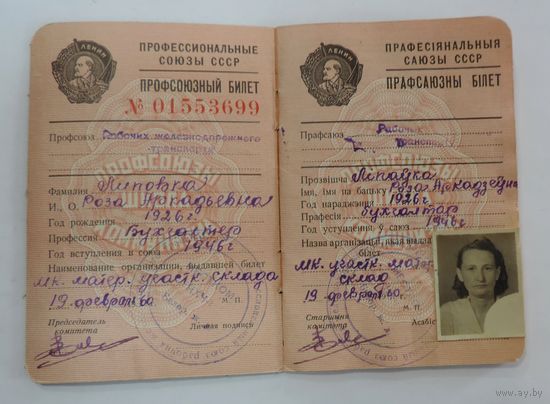 ЛЕНИН
ПРОФЕССИОНАЛЬНЫЕ
СОЮЗЫ СССР
ПРОФСОЮЗНЫЙ БИЛЕТ
№ 01553699
Профсоюз Рабочих железнодорожного
транспорта
Фамилия Липовка
И., О. Роза Аркадьевна
Год рождения 1926г
Профессия Бухгалтер
Год вступления в союз 1946г
Наименование организации, выдавшей билет
МК. матер. участк. склада
19 февраль 60
М. П.
Председатель
комитета
Личная подпись
ЛЕНИН
ПРАФЕСІЯНАЛЬНЫЯ
САЮЗЫ СССР
ПРАФСАЮЗНЫ БІЛЕТ
Прафсаюз Рабочых
Прозвішча Ліпаўка
Імя, Імя па бацьку Роза Аркадзеўна
Год нараджэння 1926г
Прафесія Бухгалтар
Год уступлення ў саюз 1946г
Назва арганізацыі, якая выдала
білет
МК. участк. матер
склад
19 февраль 60г
М. П.
Старшыня
камітэта
www.ay.by